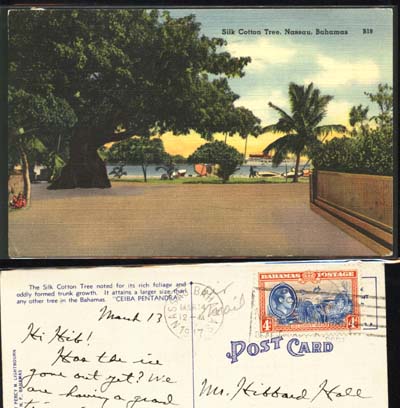 Silk Cotton Tree, Nassau, Bahamas
B19
The Silk Cotton Tree noted for its rich foliage and
oddly formed trunk growth. It attains a larger size than
any other tree in the Bahamas. "CEIBA PENTANDRA"
March 17
Hi Hib!
Has the ice
gone out yet? We
are having a grand
BAHAMAS POSTAGE
4d
4d
NASSAU
1947
POST CARD
Mr. Hibbard Hall
PERCY W. LIGHTBOURN
N. P. BAHAMAS